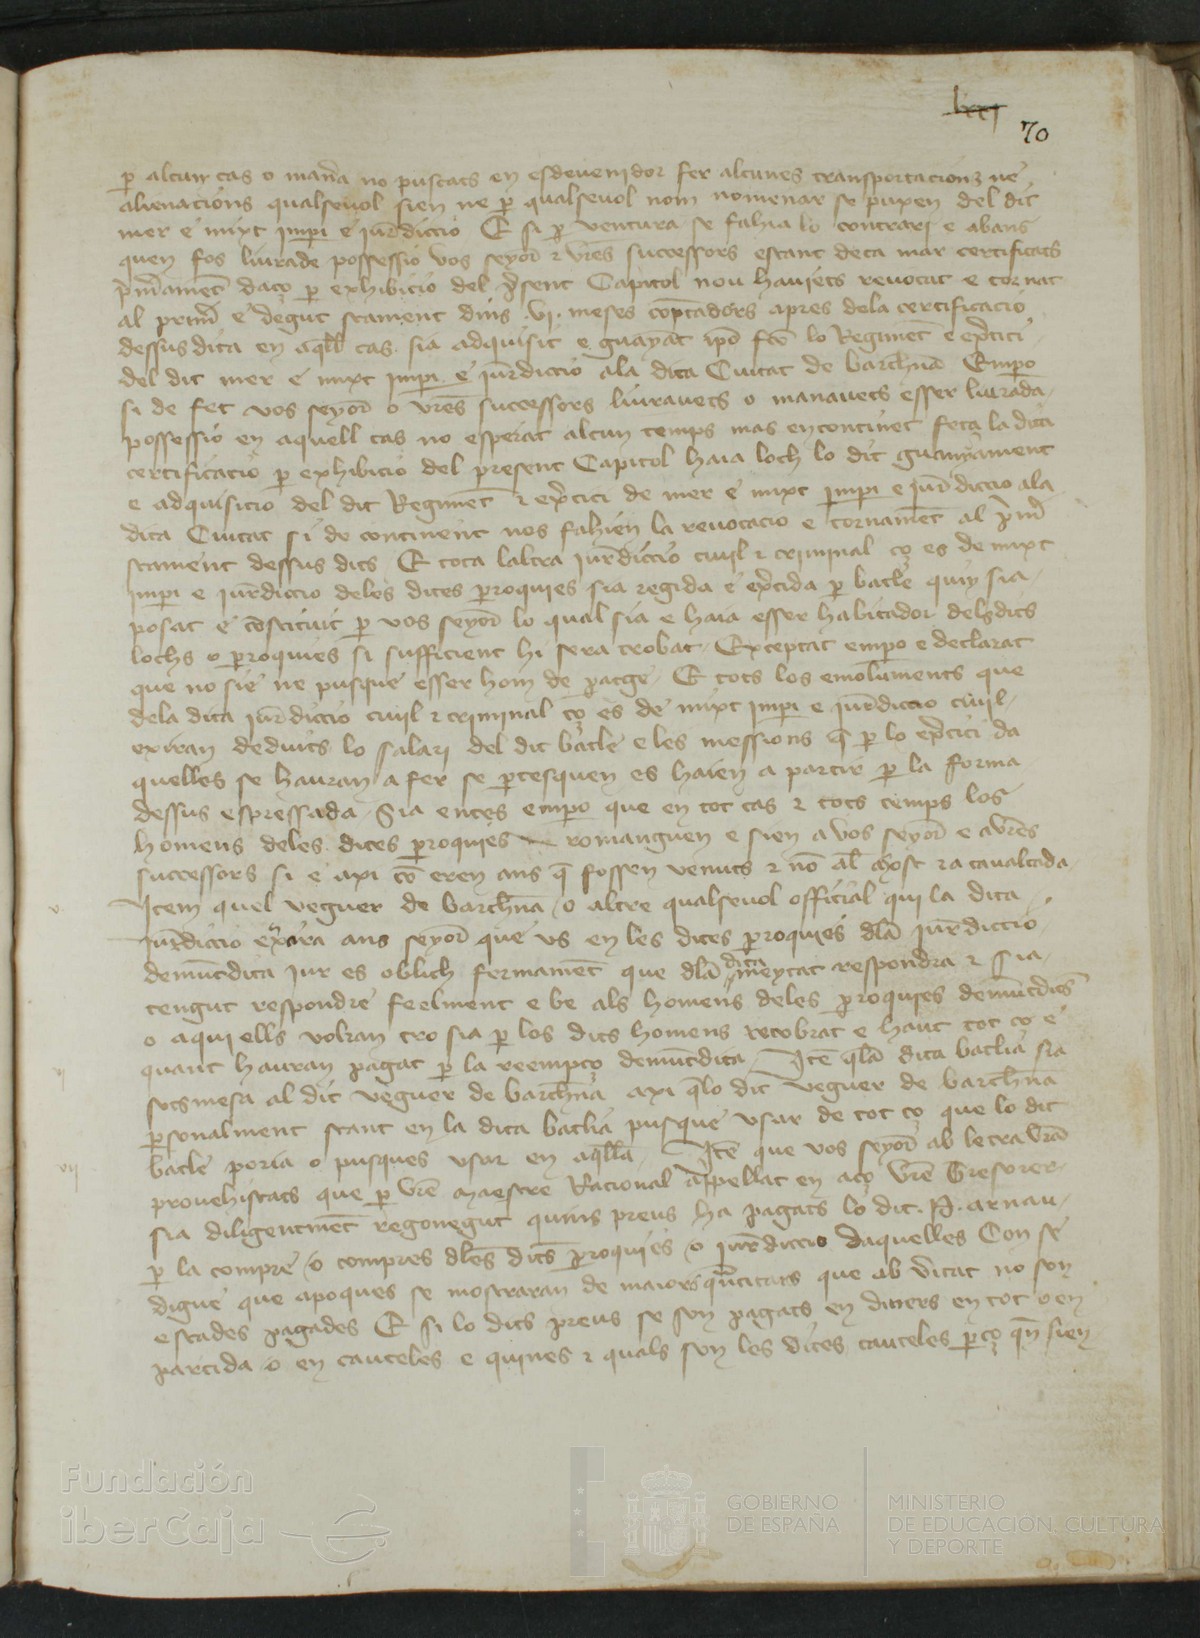 lxxj
70
p alcun cas o mana no puscats en esdevenidor fer alcunes transportacions ne
alienacions qualsevol sien ne p qualsevol nom nomenar se puxen del dit
mer e mixt impi e iurdiccio E si p ventura se fahia lo contrari e abans
quen fos liurade possessio vos seyor e vres successors estant deca mar certificats
primament daço p exhibicio del psent Capitol nou haviets revocat e tornat
al prim e degut stament dins .vi. meses comptadors apres dela certificacio
dessus dita en aqll cas sia adquisit e guayat ipo fco lo Regiment e exrcici
del dit mer e mixt impi e iurdiccio ala dita Ciutat de barchna Empo
si de fet vos seyor o vres successors liuravets o manavets esser liurada
possessio en aquell cas no esperat alcun temps mas encontinet feta la dita
certificacio p exhibicio del present Capitol haia loch lo dit guanyament
e adquisicio del dit Regimet e exrcici de mer e mixt impi e iurdiccio ala
dita Ciutat si de continent nos fahien la revocacio e tornamet al prim
stament dessus dits E tota laltra iurdiccio civil e criminal ço es de mixt
impi e iurdiccio deles dites proquies sia regida e exrcida p batle quiy sia
posat e constituit p vos seyor lo qual sia e haia esser habitador dels dits
lochs o proquies si sufficient hi sera trobat Exceptat empo e declarat
que no sie ne pusque esser hom de patge E tots los emoluments que
dela dita iurdiccio civil e criminal ço es de mixt impi e iurdiccio civil
exiran deduits lo salari del dit batle e les messions q p lo exrcici da
quelles se hauran a fer se ptesquen es haien a partir p la forma
dessus espressada Sia entes empo que en tot cas e tots temps los
homens deles dites proquies romanguen e sien a vos seyor e a vres
successors si e axi co eren ans q fossen venuts e no al host e a cavalcada
v Item quel veguer de barchna o altre qualsevol official qui la dita
iurdiccio exrcira ans seyor que us en les dites proquies dla iurdiccio
demutdita iur es oblich fermamet que dla dita meytat respondra e sia
tengut respondre feelment e be als homens deles proquies demutdies
o aqui ells volran tro sia p los dits homens recobrat e haut tot ço e
quant hauran pagat p la reempço demutdita
vi Ite qla dita batlia sia
sotsmesa al dit veguer de barchna axi qlo dit veguer de barchna
psonalment stant en la dita batlia pusque usar de tot ço que lo dit
batle poria o pusques usar en aqlla
vii Ite que vos seyor ab letra vra
provehiscats que p vre maestre Racional appellat en aço vre Tresorer
sia diligentmet regonegut quins preus ha pagats lo dit .P. arnau
p la compre o compres dles dits proquies o iurdiccio daquelles Con se
digue que apoques se mostraran de maiors qntitats que ab vitat no son
estades pagades E si lo dits preus se son pagats en diners en tot o en
partida o en cauteles e quines e quals son les dites cauteles pço qn sien
Fundación
iberCaja
GOBIERNO
DE ESPAÑA
MINISTERIO
DE EDUCACIÓN, CULTURA
Y DEPORTE